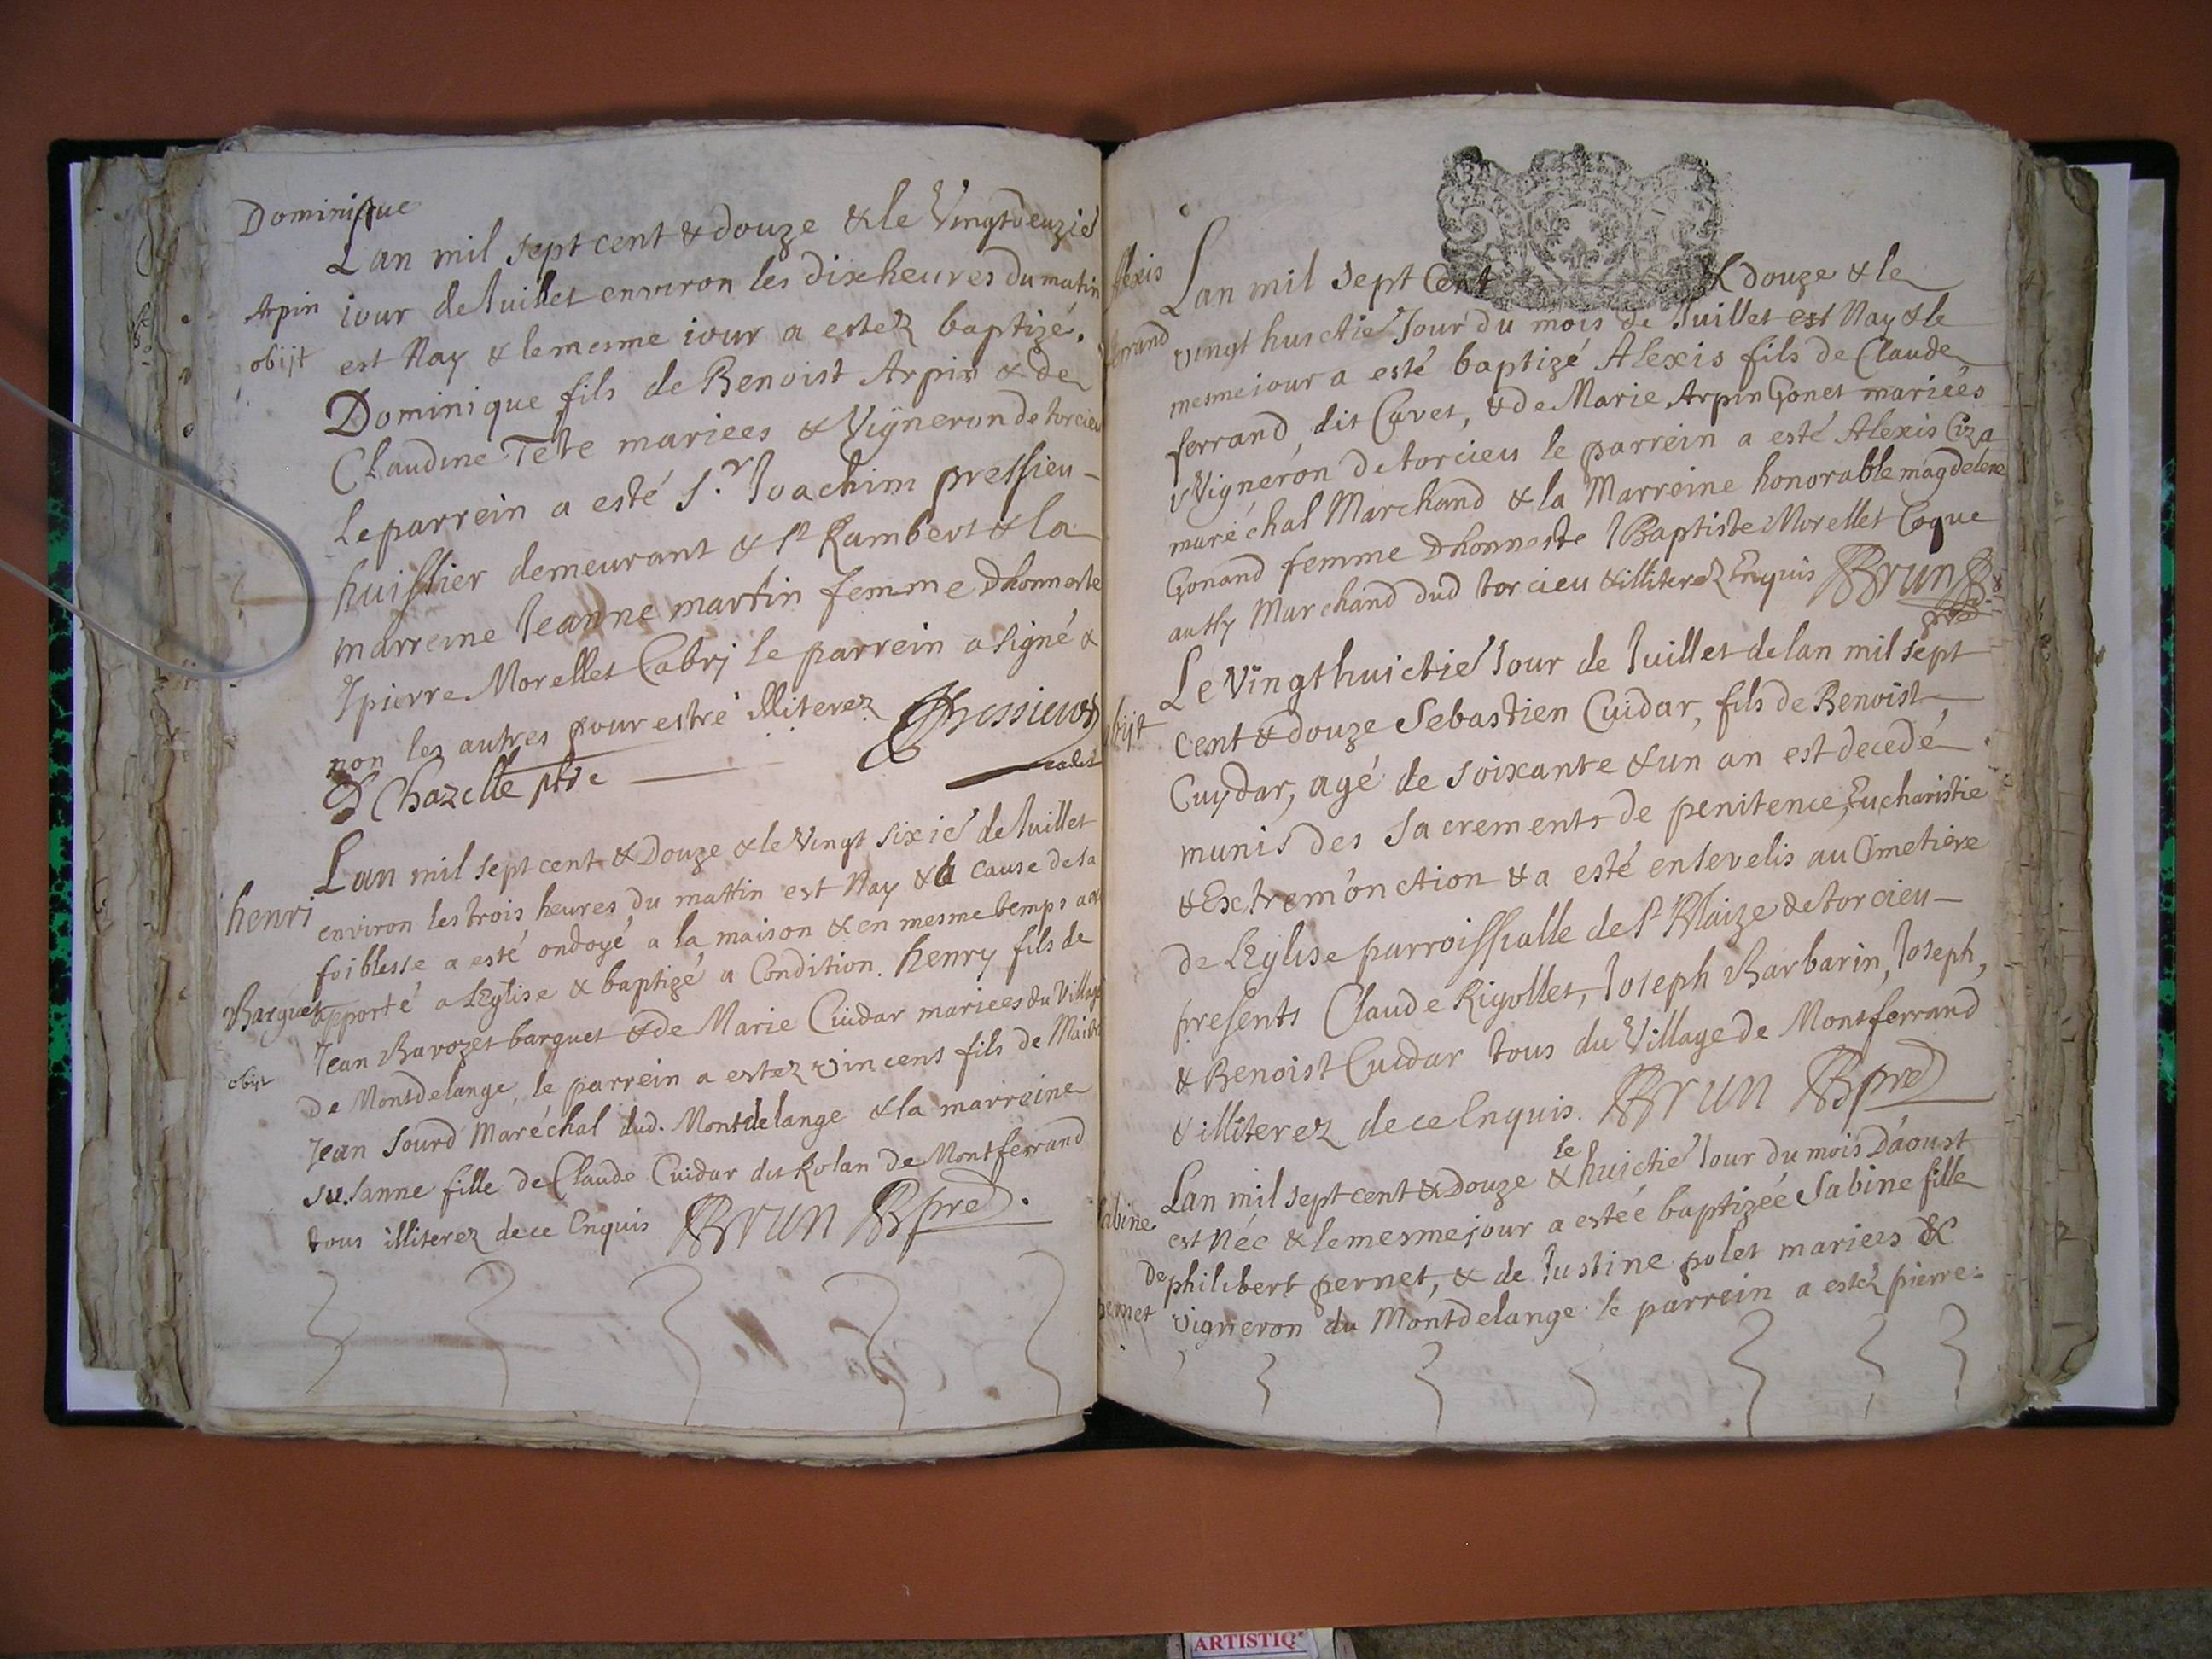 Dominique
Lan mil sept cent & douze & le Vingtdeuzie
Arpin
iour de Iuillet environ les dix heures du matin
obijt
est Nay & le mesme iour a estez baptizé.
Dominique fils de Benoist Arpin & de
Claudine Tete mariees & Vigneron de torcieu
Le parrein a esté Sr. Ioachim pressieu -
huissier demeurant & St Rambert & la
marreine Ieanne martin femme Dhonneste
pierre Morellet Cabri le parrein a signé &
non les autres pour estre illiterez
Chazelle ptre
Lan mil sept cent & Douze & le Vingt sixie de Iuillet
henri
environ les trois heures du mattin est Nay & a cause de sa
foiblesse a esté ondoyé a la maison & en mesme temps a esté
Barguet
apporté a LEglise & baptizé a Condition. henry fils de
Jean Bavozet barguet & de Marie Cuidar mariees du Village
obijt
de Montdelange, le parrein a estez vincent fils de
Jean Sourd Maréchal dud. Montdelange & la marreine
Susanne fille de Claude Cuidar dit Rolan de Montferrand
tous illiterez de ce Enquis BRUN
Lan mil sept Cent & douze & le
Alexis
vingt huictie Jour du mois de Iuillet est Nay & le
ferrand
mesme iour a esté baptizé Alexis fils de Claude
ferrand, dit Cavet, & de Marie Arpin Gonet mariées
Vigneron de torcieu le parrein a esté Alexis Ciza
maréchal Marchand & la Marreine honorable magdelene
Gonand femme Dhonneste JBaptiste Morellet Coque
aussy Marchand dud torcieu & illiterez Enquis BRUN
Le Vingt huictie Iour de Iuillet de lan mil sept
obijt
cent & douze Sebastien Cuidar, fils de Benoist
Cuydar, agé de soixante & un an est decedé
munis des sacrements de penitence, Eucharistie
& Extremonction & a esté ensevelis au Cimetiere
de LEglise parroissialle de St Blaize de torcieu -
presents Claude Rigollet, Ioseph Barbarin, Ioseph,
& Benoist Cuidar tous du Village de Montferrand
& illiterez de ce Enquis. BRUN
Lan mil sept cent & Douze & le huictie Iour du mois Daoust
Sabine
est Née & le mesme jour a estée baptizée Sabine fille
de philibert pernet, & de Iustine polet mariees &
pernet
vigneron du Montdelange le parrein a estez pierre
ARTISTIQ